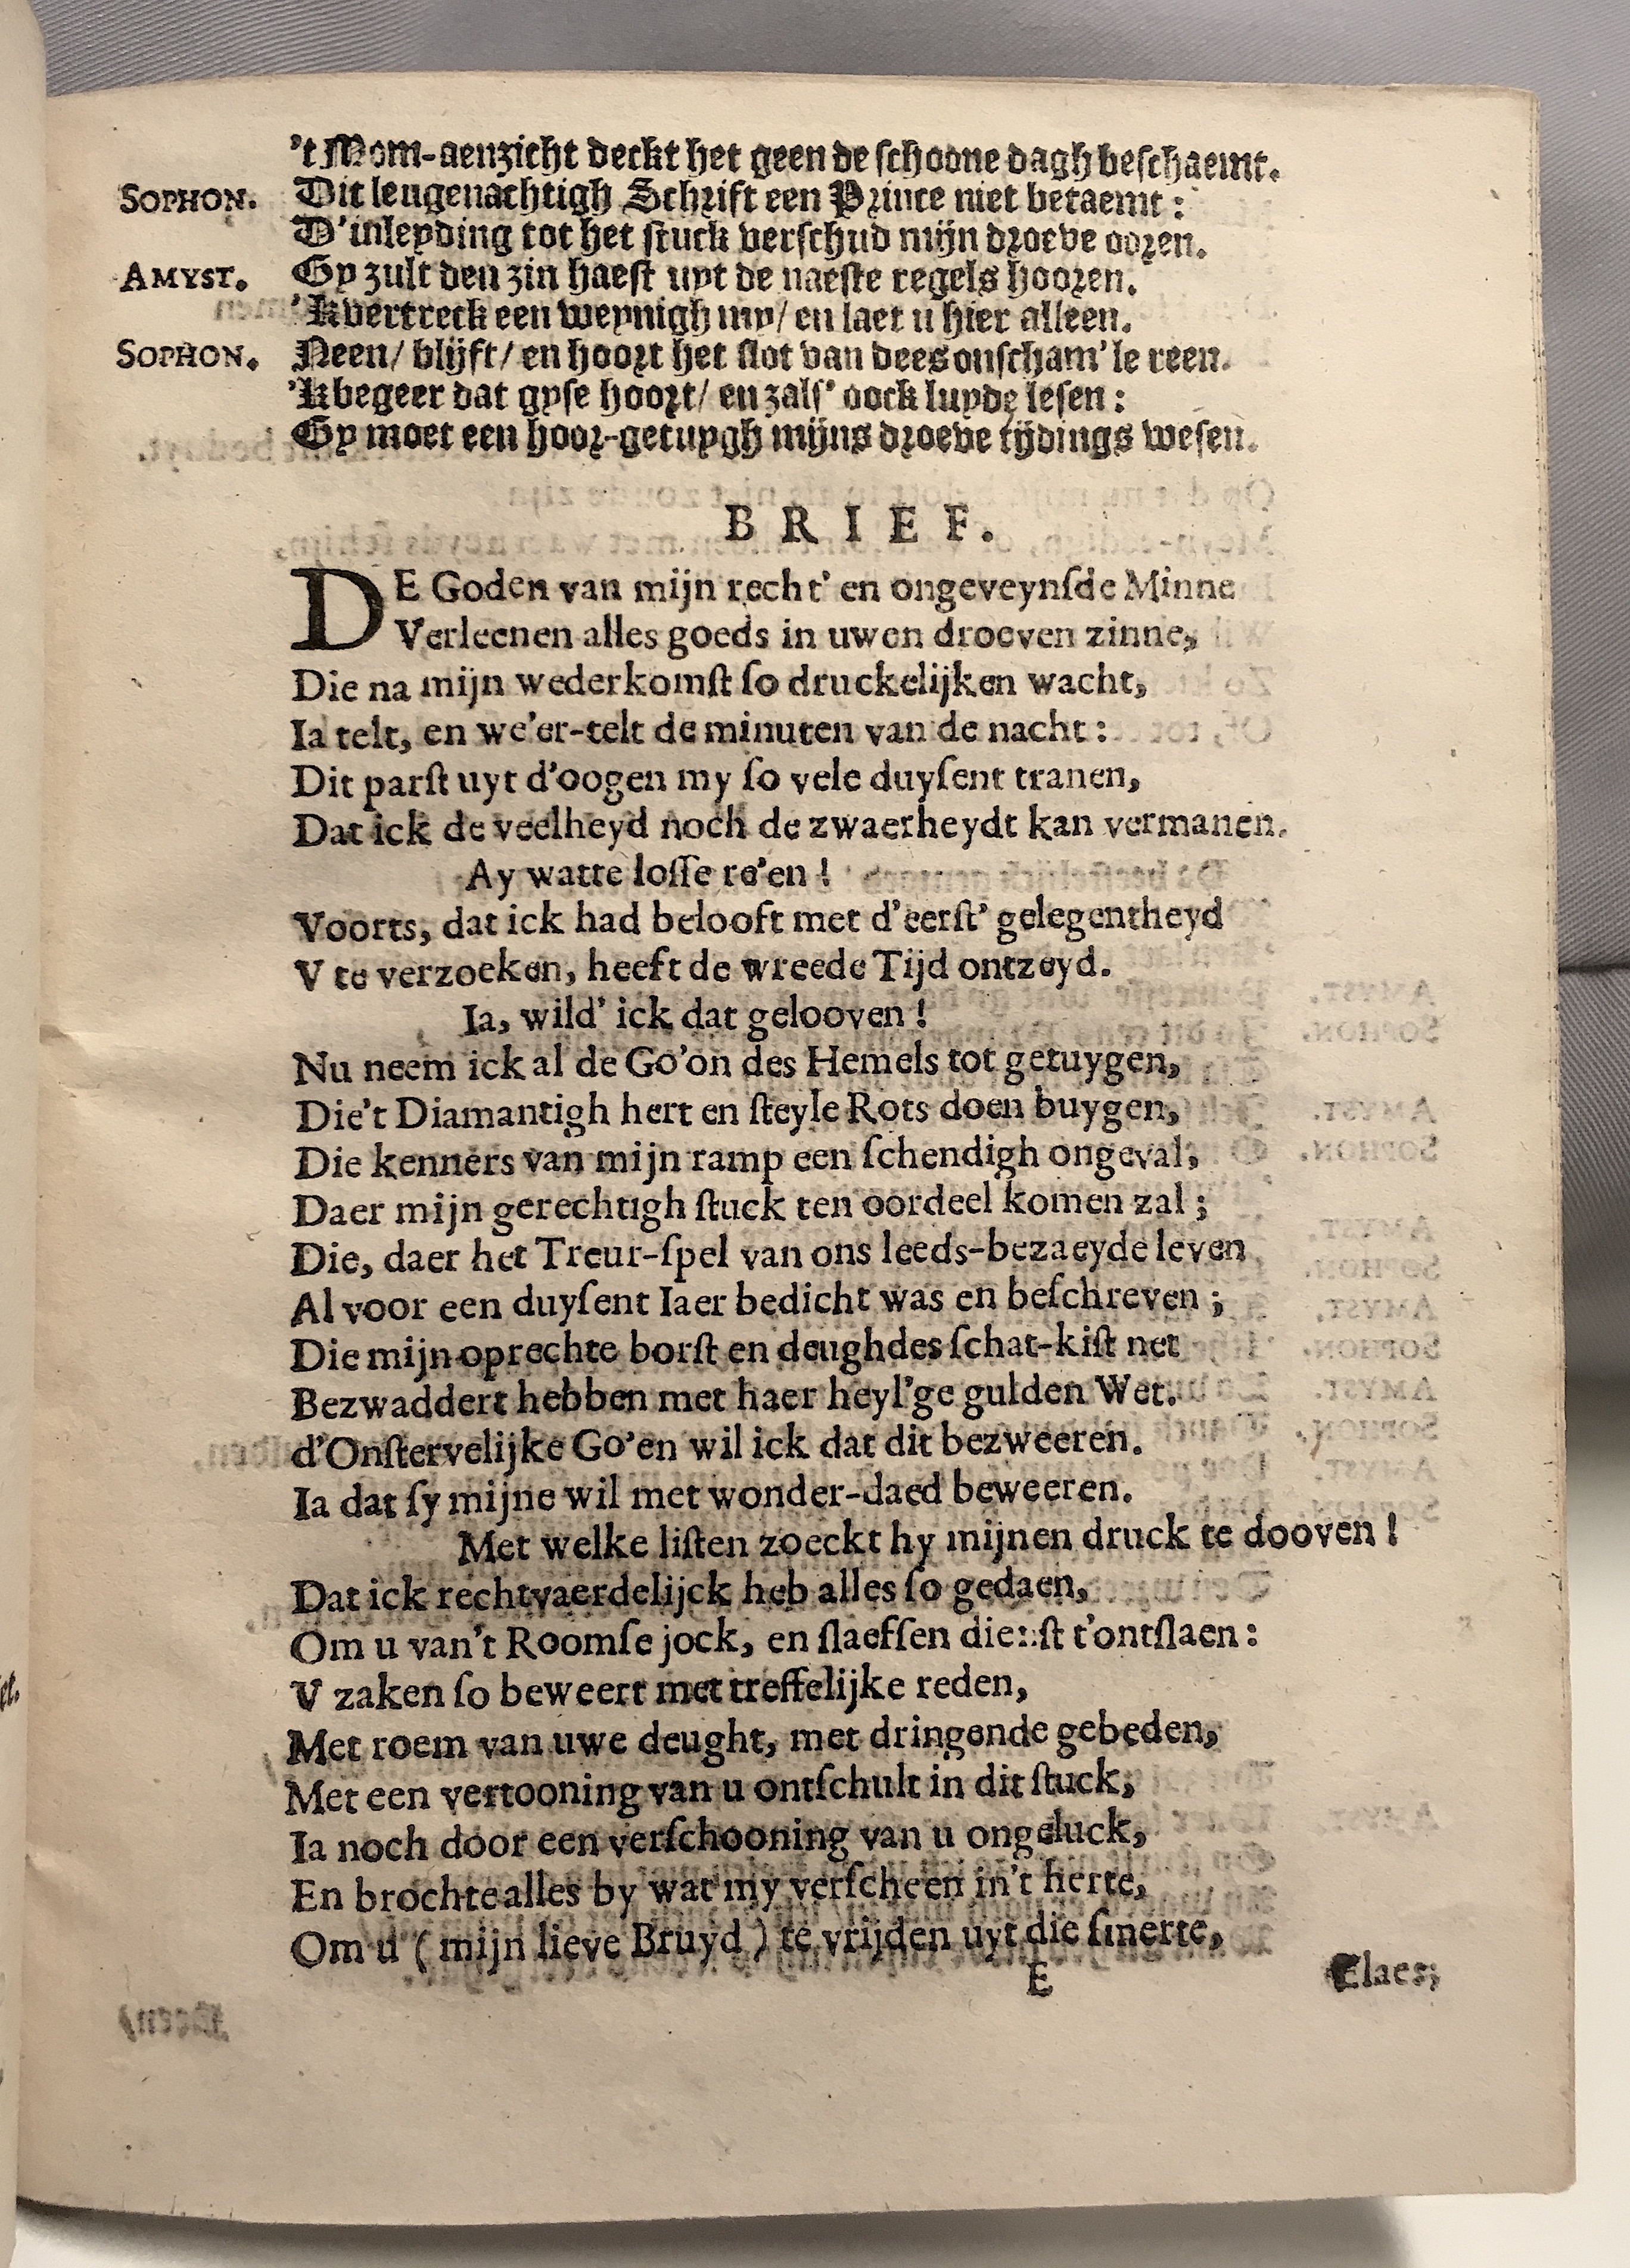 't Mom-aenzicht deckt het geen de schoone dagh beschaemt.
SOPHON. Dit leugenachtigh Schrift een Prince niet betaemt:
D'inleyding tot het stuck verschud mijn droeve ooren.
AMYST. Gy zult den zin haest uyt de naeste regels hooren.
'K vertreck een weynigh my/ en laet u hier alleen.
SOPHON. Neen/ blijft/ en hoort het slot van dees onscham'le reen.
'K begeer dat gyse hoort/ en zals' oock luyde lesen:
Gy moet een hoor-getuygh mijns droeve tijdings wesen.
BRIEF.
DE Goden van mijn recht' en ongeveynſde Minne
Verleenen alles goeds in uwen droeven zinne,
Die na mijn wederkomſt ſo druckelijken wacht,
Ia telt, en we'er-telt de minuten van de nacht:
Dit parſt uyt d'oogen my ſo vele duyſent tranen,
Dat ick de veelheyd noch de zwaerheydt kan vermanen.
Ay watte loſſe re'en!
Voorts, dat ick had belooft met d'eerſt' gelegentheyd
V te verzoeken, heeft de wreede Tijd ontzeyd.
Ia, wild' ick dat gelooven!
Nu neem ick al de Go'on des Hemels tot getuygen,
Die't Diamantigh hert en ſteyle Rots doen buygen,
Die kenners van mijn ramp een ſchendigh ongeval,
Daer mijn gerechtigh ſtuck ten oordeel komen zal;
Die, daer het Treur-ſpel van ons leeds-bezaeyde leven
Al voor een duyſent Iaer bedicht was en beſchreven;
Die mijn oprechte borſt en deughdes ſchat-kiſt net
Bezwaddert hebben met haer heyl'ge gulden Wet.
d'Onſtervelijke Go'en wil ick dat dit bezweeren.
Ia dat ſy mijne wil met wonder-daed beweeren.
Met welke liſten zoeckt hy mijnen druck te dooven!
Dat ick rechtvaerdelijck heb alles ſo gedaen,
Om u van't Roomſe jock, en ſlaefſen dienſt t'ontſlaen:
V zaken ſo beweert met treffelijke reden,
Met roem van uwe deught, met dringende gebeden,
Met een vertooning van u ontſchult in dit ſtuck,
Ia noch door een verſchooning van u ongeluck,
En brochte alles by wat my verſcheen in't herte,
Om u (mijn lieve Bruyd) te vrijden uyt die ſmerte,
E Elaes;